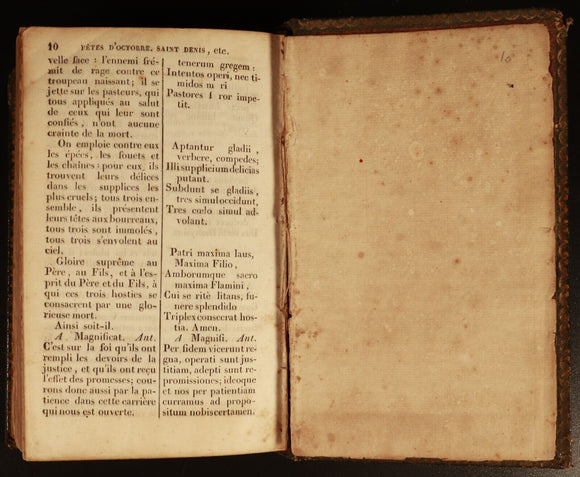 10 FÊTES D'OCTOBRE. SAINT DENIS, etc.
velle face : l'ennemi fré-
mit de rage contre ce
troupeau naissant; il se
jette sur les pasteurs, qui
tous appliqués au salut
de ceux qui leur sont
confiés, n'ont aucune
crainte de la mort.
On emploie contre eux
les épées, les fouets et
les chaînes : pour eux, ils
trouvent leurs délices
dans les supplices les
plus cruels; tous trois en-
semble, ils présentent
leurs têtes aux bourreaux,
tous trois sont immolés,
tous trois s'envolent au
ciel.
Gloire suprême au
Père, au Fils, et à l'es-
prit du Père et du Fils, à
qui ces trois hosties se
consacrent par une glo-
rieuse mort.
Ainsi soit-il.
A Magnificat. Ant.
C'est sur la foi qu'ils ont
rempli les devoirs de la
justice, et qu'ils ont reçu
l'effet des promesses; cou-
rons donc aussi par la pa-
tience dans cette carrière
qui nous est ouverte.
tenerum gregem :
Intentos operi, nec ti-
midos m ri
Pastores f ror impe-
tit.
Aptantur gladii,
verbere, compedes;
Illi supplicium delicias
putant.
Subdunt se gladiis,
tres simul occidunt,
Tres cœlo simul ad-
volant.
Patri maxima laus,
Maxima Filio,
Amborumque sacro
maxima Flamini,
Cui se ritè litans, fu-
nere splendido
Triplex consecrat hos-
tia. Amen.
A Magnifi. Ant.
Per fidem vicerunt re-
gna, operati sunt jus-
titiam, adepti sunt re-
promissiones; ideoque
et nos per patientiam
curramus ad propo-
situm nobis certamen.